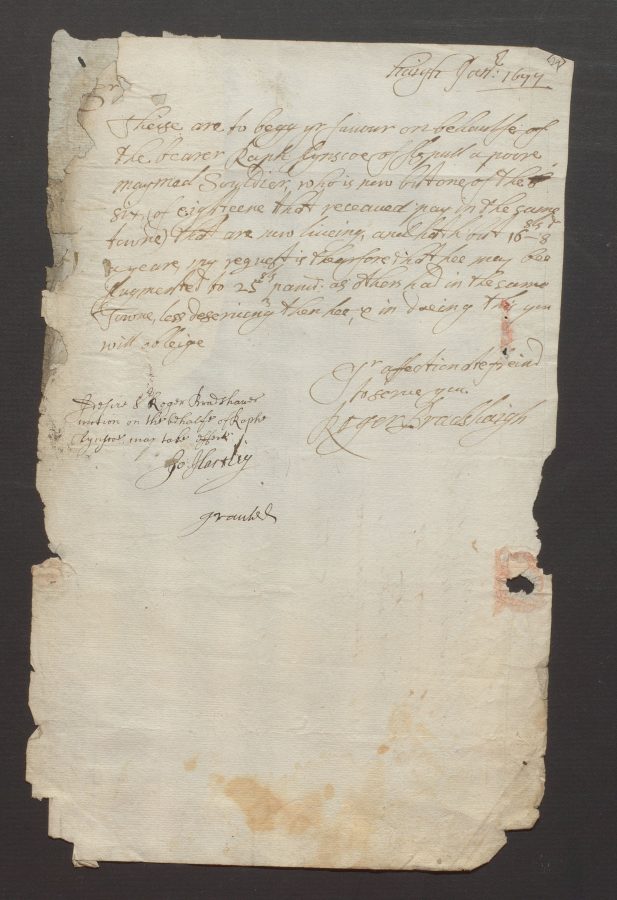 Haigh Jan: 8 1677
Sr
Theise are to begg yr favour on behaulfe of
the bearer Raph Lynscoe of Aspull a poore
maymed Souldier, who is now but one of the
six (of eighteene that receaved pay in the same
towne) that are now liveing, and hath but 16s–8d
a yeare, my request is therefore that hee may bee
Augmented to 25s p annu: as others had in the same
Towne, less deserving then hee, & in doeing this you
will obleige
Yr affectionate freind
to serve you
Roger Bradshaigh
I desire Sr Roger Bradshawes
motion on the behalfe of Raphe
Lynscoe may take effect
Jo: Hartley
graunted